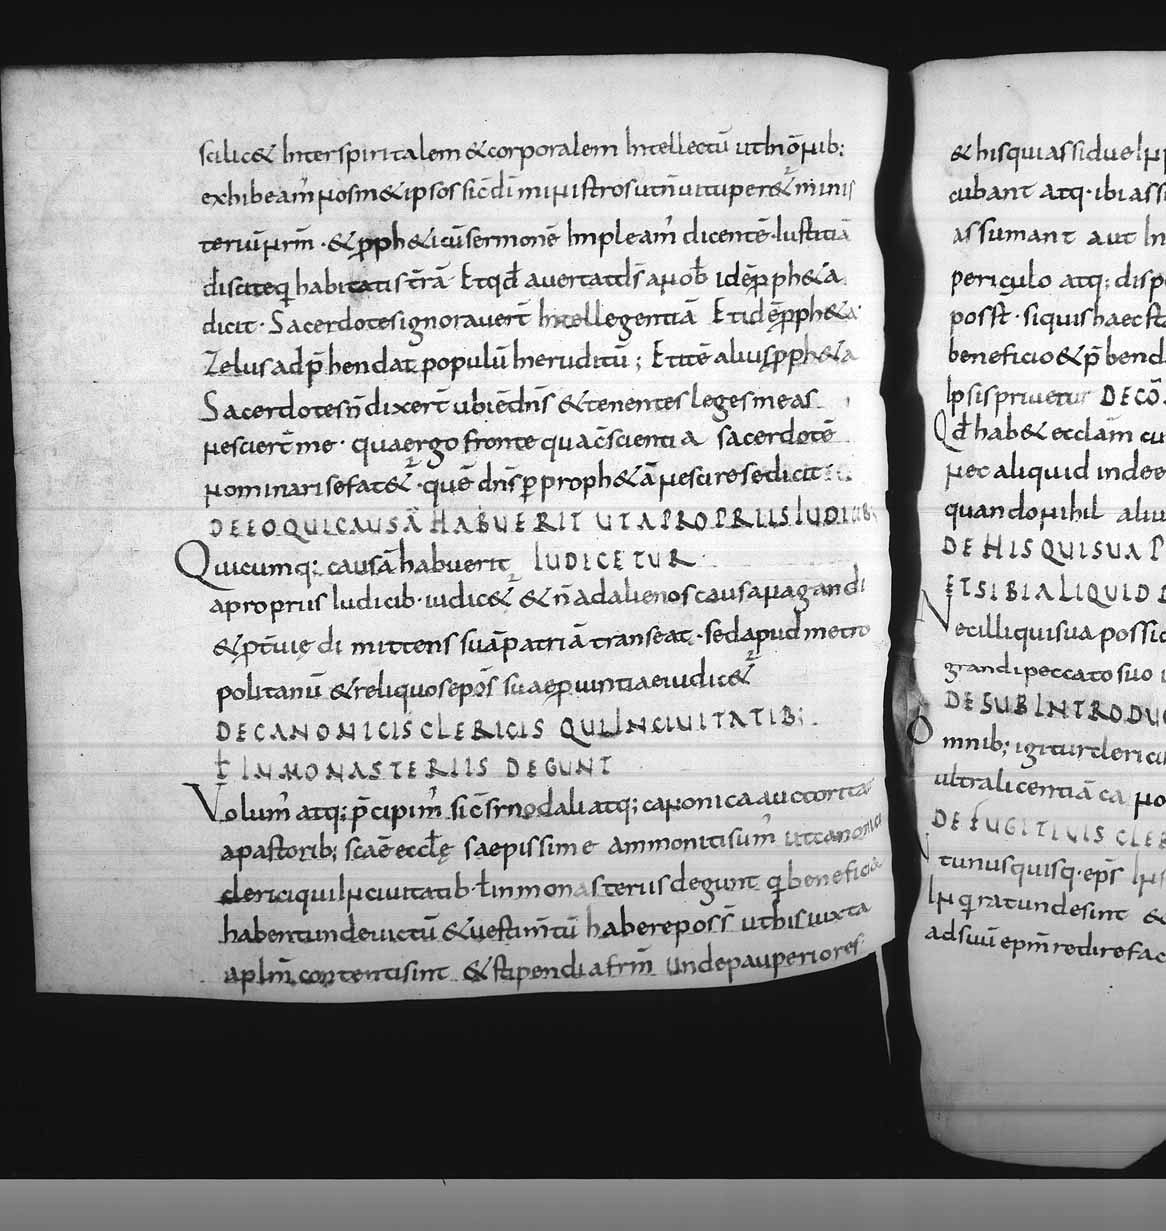 scilic& Interspiritalem &corporalem Intellectū utInōnib;
exhibeam' nosm&ipsos sic̄ di ministros utn̄ uituper& minis
teriū nrm̄ · & p̱ph&icū sermonē Impleam' dicentē · Iustitiā
discite qi habitatis t̄rā · Et qd̄ auertat dŝ a nob̄ idē p̱ph&a
dicit · Sacerdotes ignorauer̄t Intellegentiā Et idē p̱ph&a ·
Zelus adp̄hendat populū Ineruditū ; Et itē alius p̱ph&a
Sacerdotes n̄ dixer̄t ubi ē dn̄s &tenentes leges meas
nescier̄t me · qua ergo fronte qua c̄scientia sacerdotē
nominari se fat&' · quē dn̄s p̱ proph&ā nescire se dicit
DE EO QUI CAUSĀ HABUERIT UT A PROPRIIS IUDICIB;
Quicumq; causā habuerit IUDICETUR
a propriis Iudicib · iudic&' & n̄ ad alienos causa uagandi
&p̄tuię dimittens suā patriā transeat · sed apud metro
politanū &reliquos ep̄os suae p̱uintiae iudic&'
DE CANONICIS CLERICIS QUI IN CIUITATIB;
ƚ IN MONASTERIIS DEGUNT
Volum' atq; p̄cipim' sic̄ synodali atq; canonica auctorita
a pastorib; sc̄ae eccƚę saepissime ammoniti sum' ut canonici
clerici qui In ciuitatib · ƚ in monasteriis degunt qi beneficia
habent unde uictū &uestim̄tū habere poss̄ ut his iuxta
aplm̄ contenti sint &stipendia frm̄ unde pauperiores
& his qui assidue In
cubant atq · ibi assi
assumant aut In
periculo atq; dispe
posst̄ · siquis haec sta
beneficio &p̄bend
Ipsis priuetur DE CŌ
Qd̄ hab& ecclam̄ cu
nec aliquid inde e
quando nihil aliu
DE HIS QUI SUA P
ET SIBI ALIQUID D
Nec illi qui sua possid
grandi peccato suo i
DE SUBINTRODUC
Omnib; igitur clericis
ultra licentiā ca no
DE FUGITIUIS CLER
tunusquisq · ep̄s In s
In qirat unde sint &
ad suū ep̄m redire fac